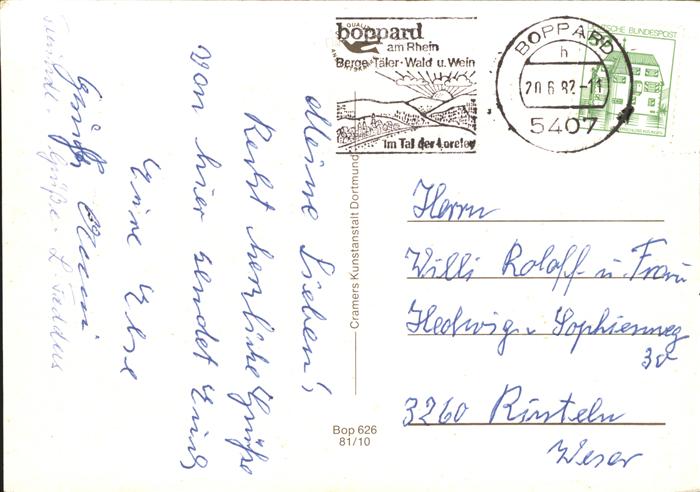 Meine Lieben!
Recht herzliche Grüße
von hier sendet Euch
Eure Else
Grüße
Grüße L. Taddas
QUALITÄT
boppard
am Rhein
Berge·Täler·Wald u. Wein
Im Tal der Loreley
BOPPARD
h
20.6.82-11
5407
DEUTSCHE BUNDESPOST
Cramers Kunstanstalt Dortmund
Bop 626
81/10
Herrn
Willi Roloff u. Frau
Hedwig v Sophienweg
30
3260 Rinteln
Weser